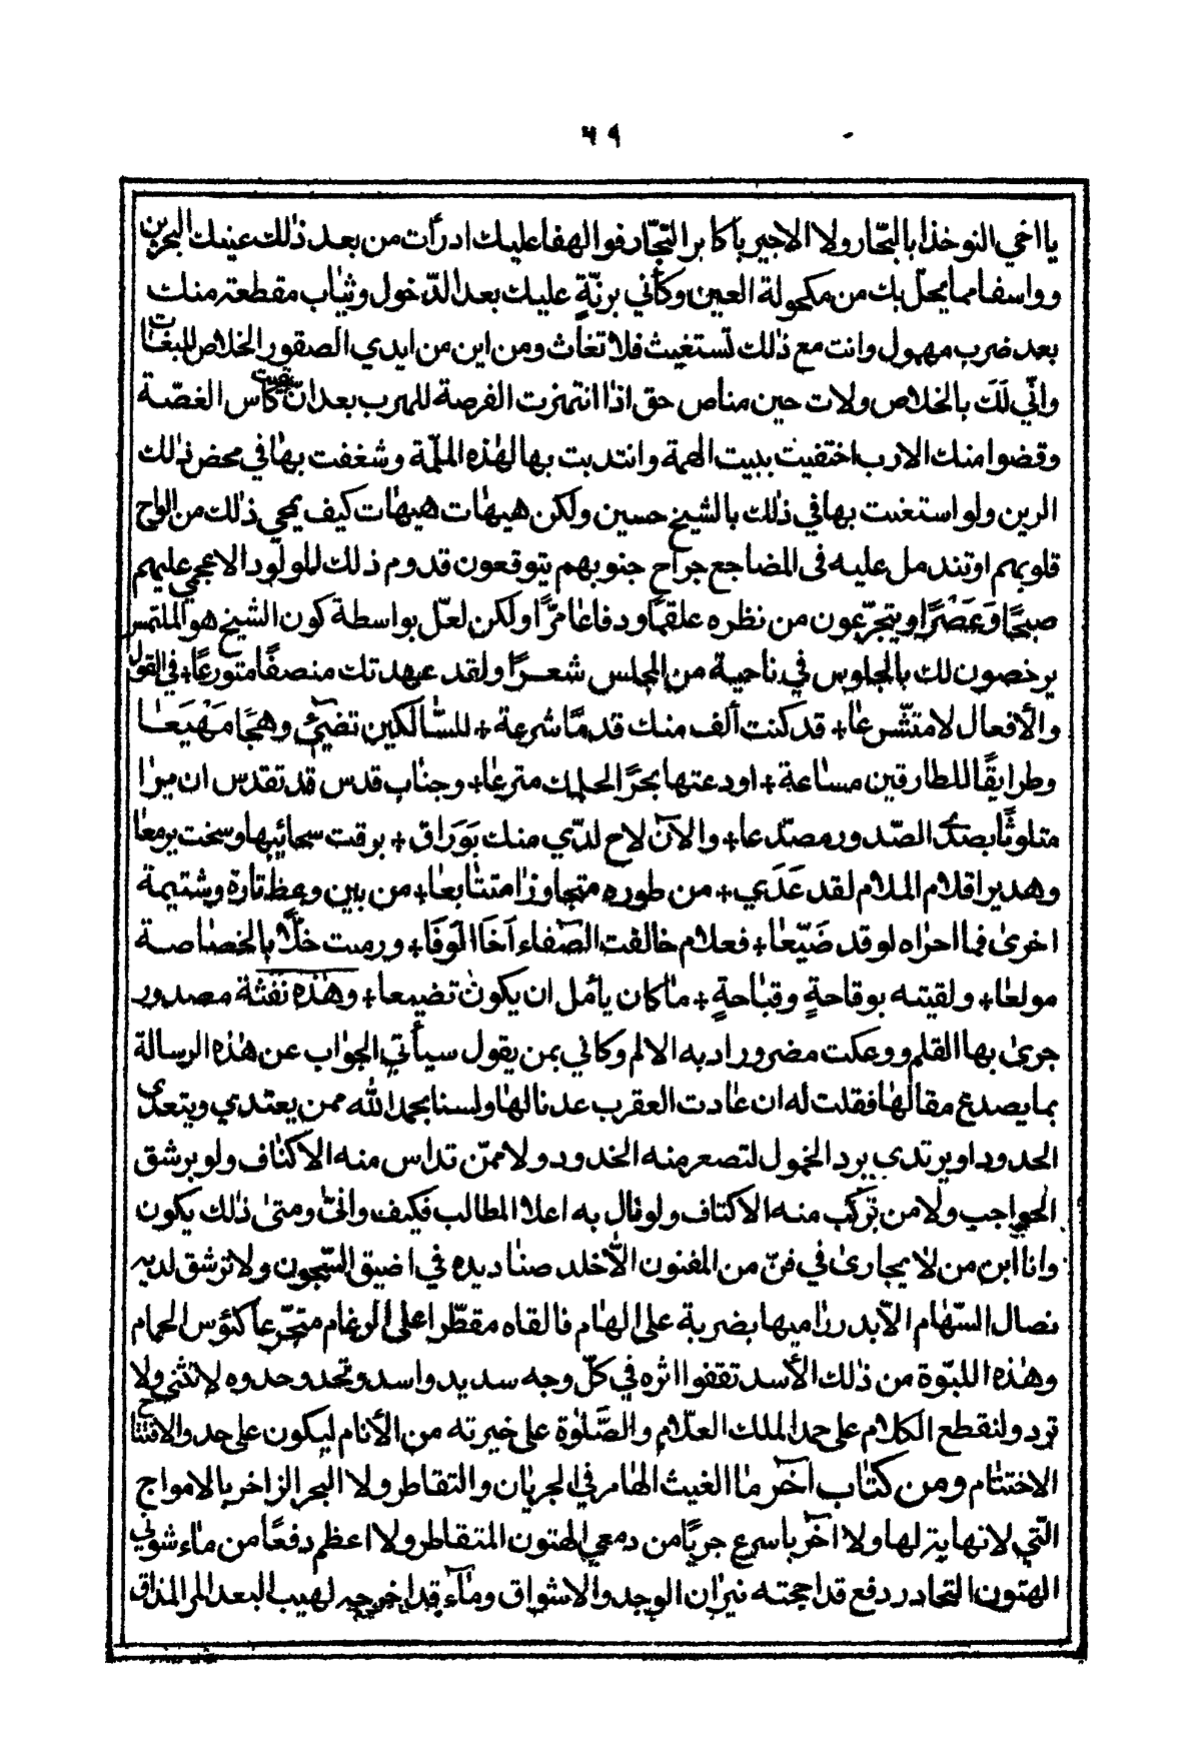 ٦٩
يا اخي النوخذا بالتجار ولا الاجير بأكابر التجّار فوا لهفا عليك اذ رأت من بعد ذلك عينك البحرين
وواسفا مما يحلّ بك من مكحولة العين وكأني برنّةٍ عليك بعد الدّخول وثياب مقطعة منك
بعد ضرب مهول وانت مع ذلك تستغيث فلا تغاث ومن اين من ايدي الصقور الخلاص للبغاث
وانّي لَكَ بالخلاص ولات حين مناص حق اذا انتهزت الفرصة للهرب بعد انّ سقيت كأس الغصّة
وقضوا منك الارب اختفيت ببيت الهمة وانتدبت بها لهذه الملمّة وشغفت بها في محض ذلك
الرين ولو استغنت بها في ذلك بالشيخ حسين ولكن هيهات هيهات كيف يمحي ذلك من الواح
قلوبهم او تندمل عليه فى المضاجع جراح جنوبهم يتوقعون قدوم ذلك للولود الاعجمي عليهم
صبحًا وَعَصْرًا ويتجرّعون من نظره علقمًا ودفاعا مرًّا ولكن لعلّ بواسطة كون الشيخ هو الملتمس
يرخصون لك بالجلوس في ناحية من المجلس شعرًا ولقد عهدتك منصفًا متورعًا + في القول
والأفعال لا متشّرعا + قد كنت ألف منك قدمًا شرعة + للسّالكين تضيئ وهجًا مَهْيَعَا
وطرايقًا للطارقين مساعة + اودعتها بحرًا لحلمك مترعا + وجناب قدس قد تقدس ان يرا
متلوثًا بصدى الصّدور مصدّعا + والآن لاح لدّي منك بَوَراق + برقت سحائبها وسخت يرمعا
وهدير اقلام الملام لقد عَدَي + من طوره متجاوزا متتابعا + من بين وعظ تارة وشتيمة
اخرى فما احراه لو قد ضَيّعا + فعلام خالفت الصّفاء آخَا الوَفَا + ورميت خلًّا بالخصاصة
مولعا + ولقيته بوقاحةٍ وقباحةٍ + ما كان يأمل ان يكون تضيعا + وهذه نفثة مصدور
جرى بها القلم ووعكت مضرور اد به الالم وكاني بمن يقول سيأتي الجواب عن هذه الرسالة
بما يصدع مقالها فقلت له ان عادت العقرب عدنا لها ولسنا بحمد الله ممن يعتدي ويتعدى
الحدود او يرتدي برد الخمول لتصعر منه الخدود ولا ممّن تداس منه الاكناف ولو برشق
الحواجب ولا من تركب منه الاكتاف ولو نال به اعلا المطالب فكيف وانّى ومتى ذلك يكون
وانا ابن من لا يجارى في فنّ من الفنون الّا خلد صناديده في اضيق السّجون ولا ترشق لديه
نصال السّهام الّا بدر راميها بضربة على الهام فالقاه مقطّرا على الرغام متجّرعا كئوس الحمام
وهذه اللبوّة من ذلك الأسد تقفوا اثره في كلّ وجه سديد واسد وتحدو حدوه لا نثني ولا
ترد ولنقطع الكلام على حمد الملك العلّام والصَّلوٰة على خيرته من الأنام ليكون على حد والافتتاح
الاختتام ومن كتاب آخر ما الغيث الهامر في الجريان والتقاطر ولا البحر الزاخر بالامواج
التي لا نهاية لها ولا آخر باسرع جريًا من دمعي الهتون المتقاطر ولا اعظم دفعًا من ماء شوني
الهتون التحادر دفع قد اججته نيران الوجد والاشواق ومآء قد اخرجه لهيب البعد المر المذاق